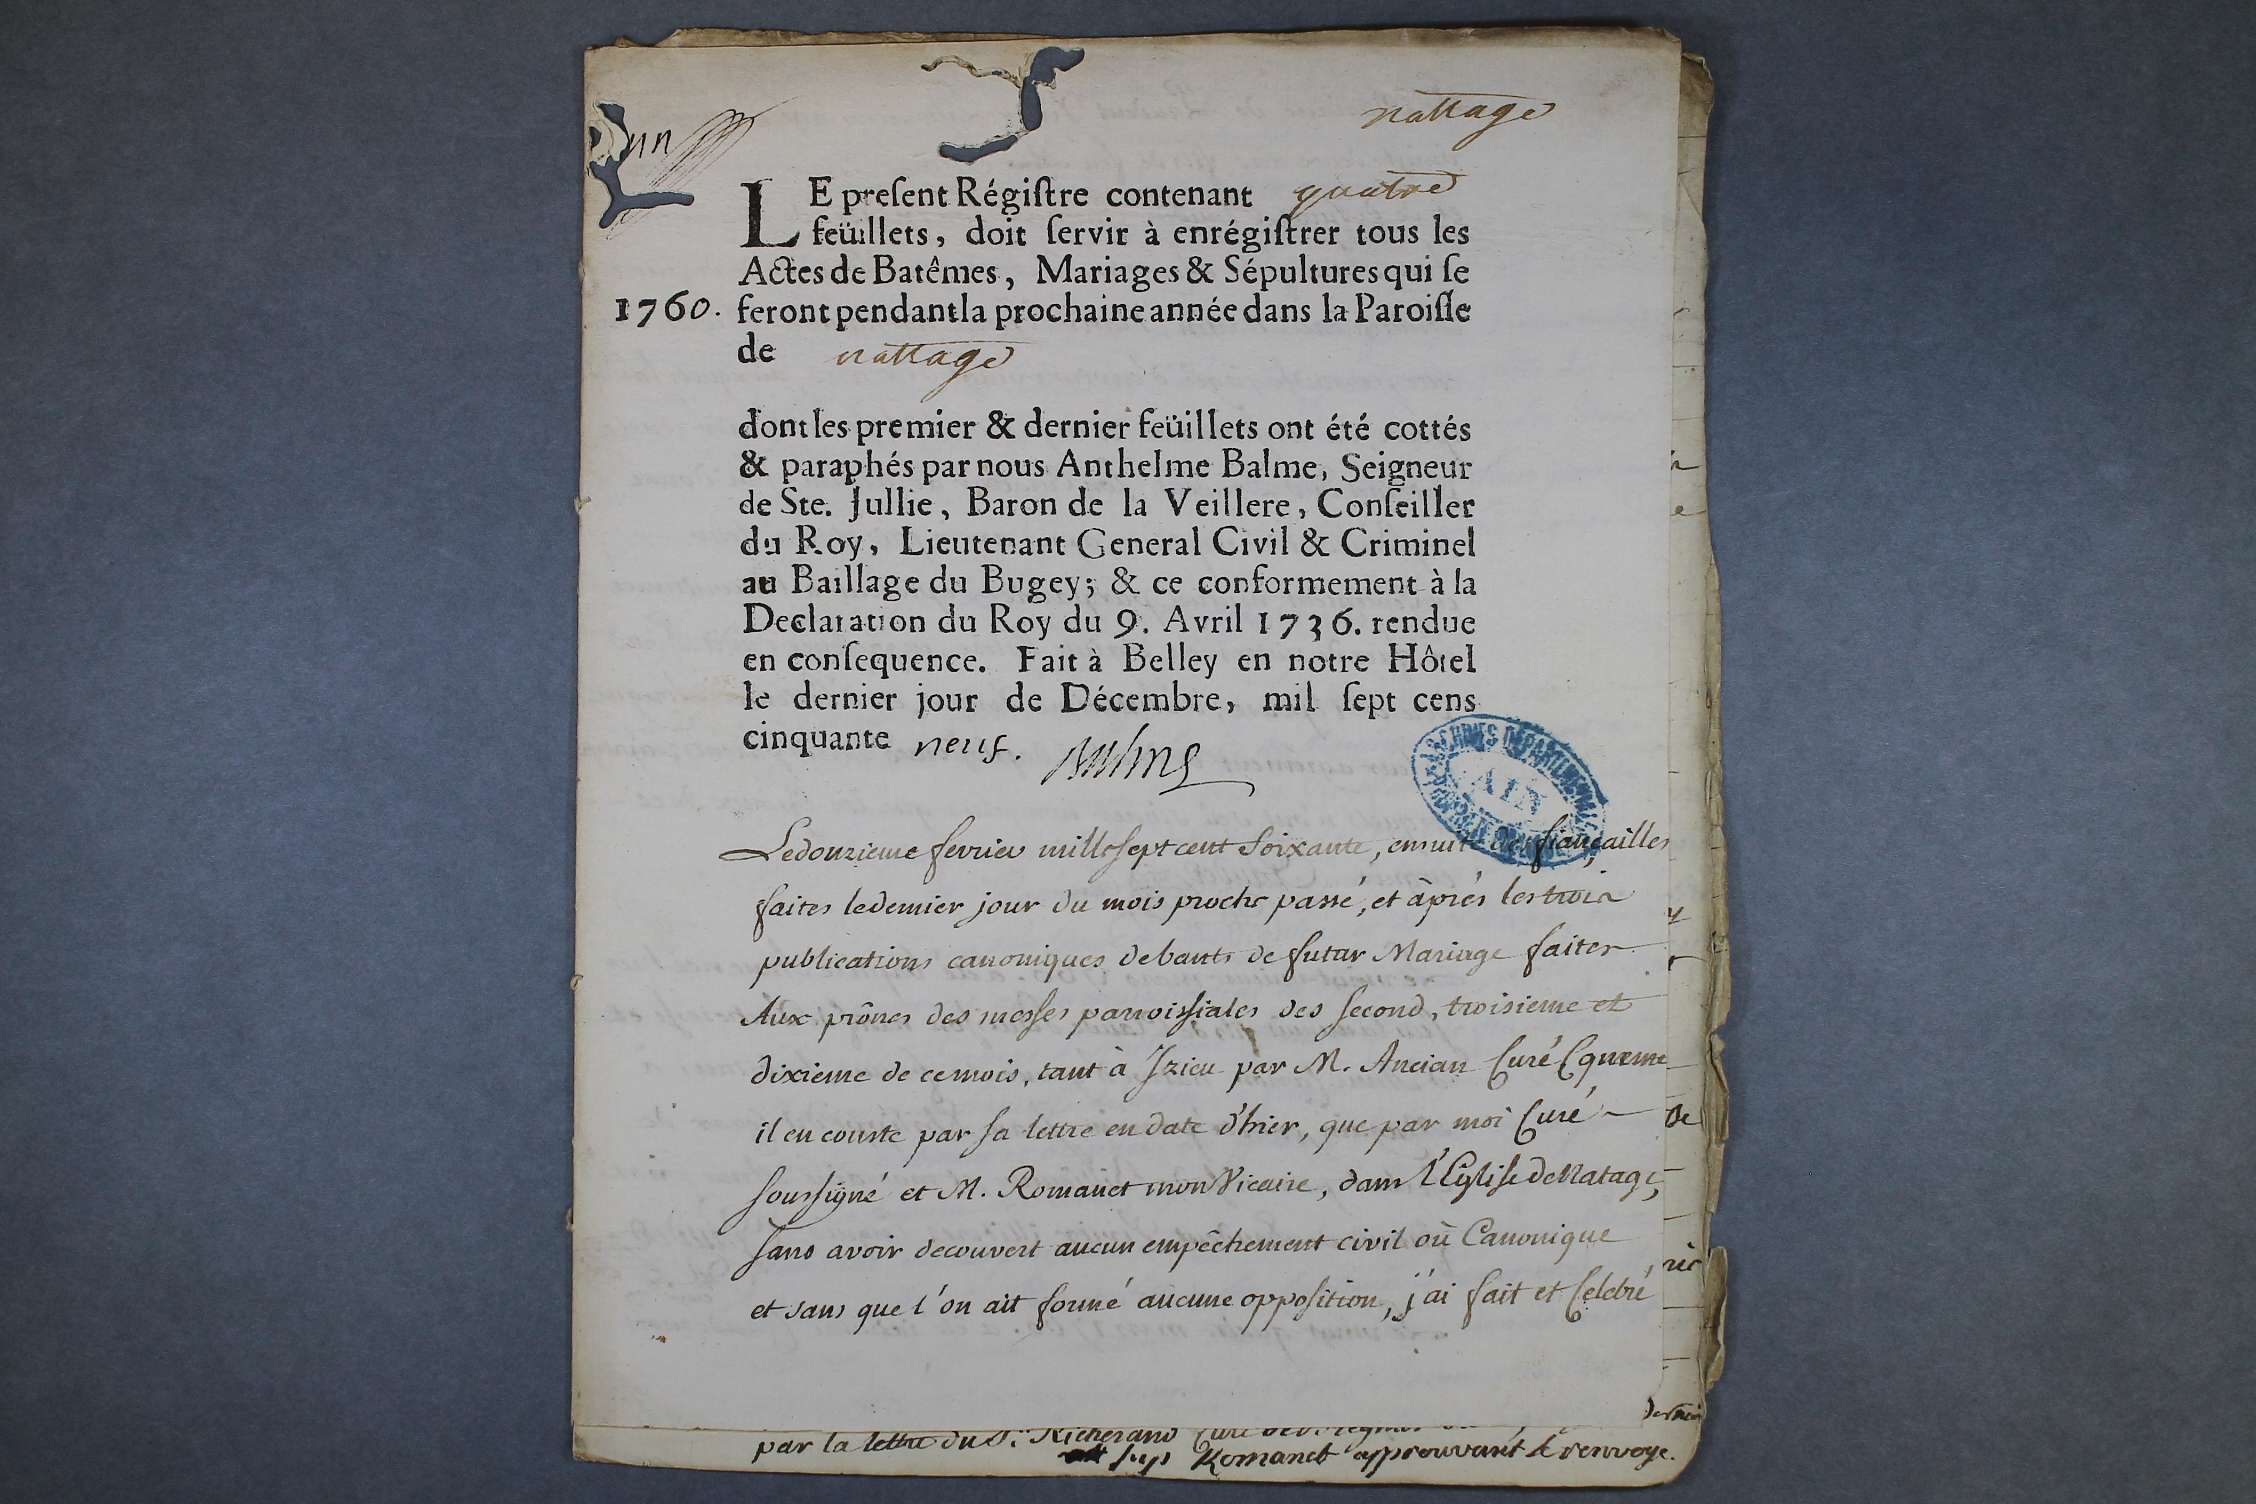 un
nattage
LE preſent Régiſtre contenant quatre
feüillets, doit ſervir à enrégiſtrer tous les
Actes de Batêmes, Mariages & Sépultures qui ſe
1760. feront pendant la prochaine année dans la Paroiſſe
de nattage
dont les premier & dernier feüillets ont été cottés
& paraphés par nous Anthelme Balme, Seigneur
de Ste. Jullie, Baron de la Veillere, Conſeiller
du Roy, Lieutenant General Civil & Criminel
au Baillage du Bugey; & ce conformement à la
Declaration du Roy du 9. Avril 1736. rendue
en conſequence. Fait à Belley en notre Hôtel
le dernier jour de Décembre, mil ſept cens
cinquante neuf. Balme
ARCHIVES DÉPARTEMENTALES
AIN
Le douzieme fevrier mille sept cent soixante, ensuite des fiançailles
faites le dernier jour du mois proche passé, et àprés les trois
publications canoniques de bants de futur Mariage faites
Aux prônes des messes parroissiales des second, troisieme et
dixieme de ce mois, tant à Izieu par M. Ancian Curé Comme
il en conste par sa lettre en date d'hier, que par moi Curé
soussigné et M. Romanet mon Vicaire, dans l'Eglise de Natage,
sans avoir decouvert aucun empêchement civil où Canonique
et sans que l'on ait formé aucune opposition, j'ai fait et Celebré
par la lettre du Sr. Richerand Curé
Romanet approuvant le renvoye.